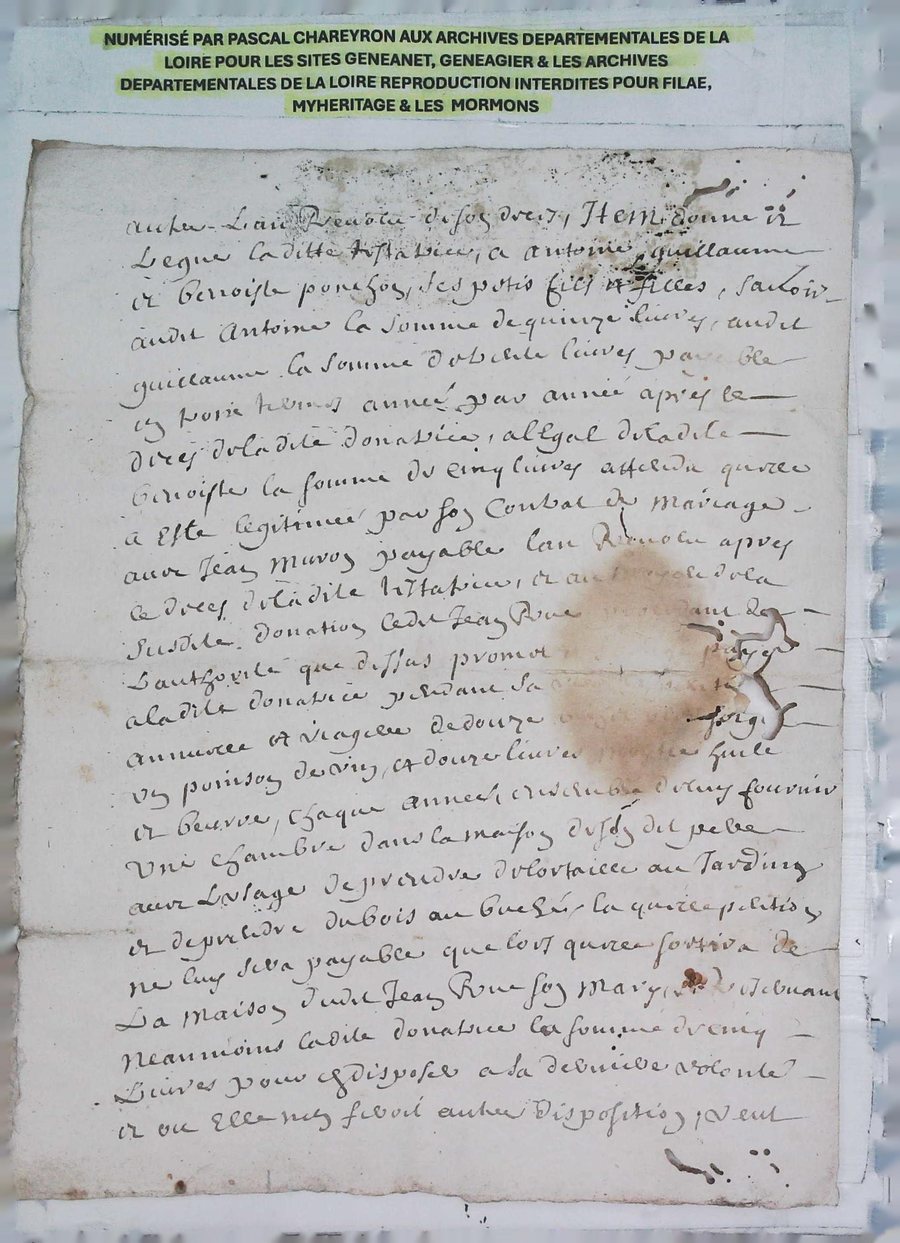 NUMÉRISÉ PAR PASCAL CHAREYRON AUX ARCHIVES DEPARTEMENTALES DE LA
LOIRE POUR LES SITES GENEANET, GENEAGIER & LES ARCHIVES
DEPARTEMENTALES DE LA LOIRE REPRODUCTION INTERDITES POUR FILAE,
MYHERITAGE & LES MORMONS
autre Lan Revolu de son deces, Item donne et
Legue laditte testatrice, a Antoine, guillaume
et benoiste ponchon, ses petis fils et filles, savoir
audit Antoine la somme de quinze livres, audit
guillaume la somme de livres payable
en trois termes année par année apres le
deces deladite donatrice, allegal deladite
benoiste la somme de cinq livres attendu quelle
a Esté legitimée par son Contrat de Mariage
avec Jean Muron payable lan Revolu apres
le deces deladite testatrice, et au dela
susdite donation ledit Jean Rue de
Lauthorité que dessus promet payer
aladite donatrice pendant sa
annuelle et viagere de douze
un poinson de vin, et douze livres huile
et beurre, chaque année, ensemble deluy fournir
une chambre dans la maison de son dit pere
avec Lusage de prendre delortaille au Jardin
et de prendre du bois au buché, la quelle pention
ne luy sera payable que lors quelle sortira de
La maison dudit Jean Rue son mary,
Neanmoins ladite donatrice la somme de cinq
Livres pour en disposer a sa derniere volonté
et ou Elle nen feroit autre Disposition, veut